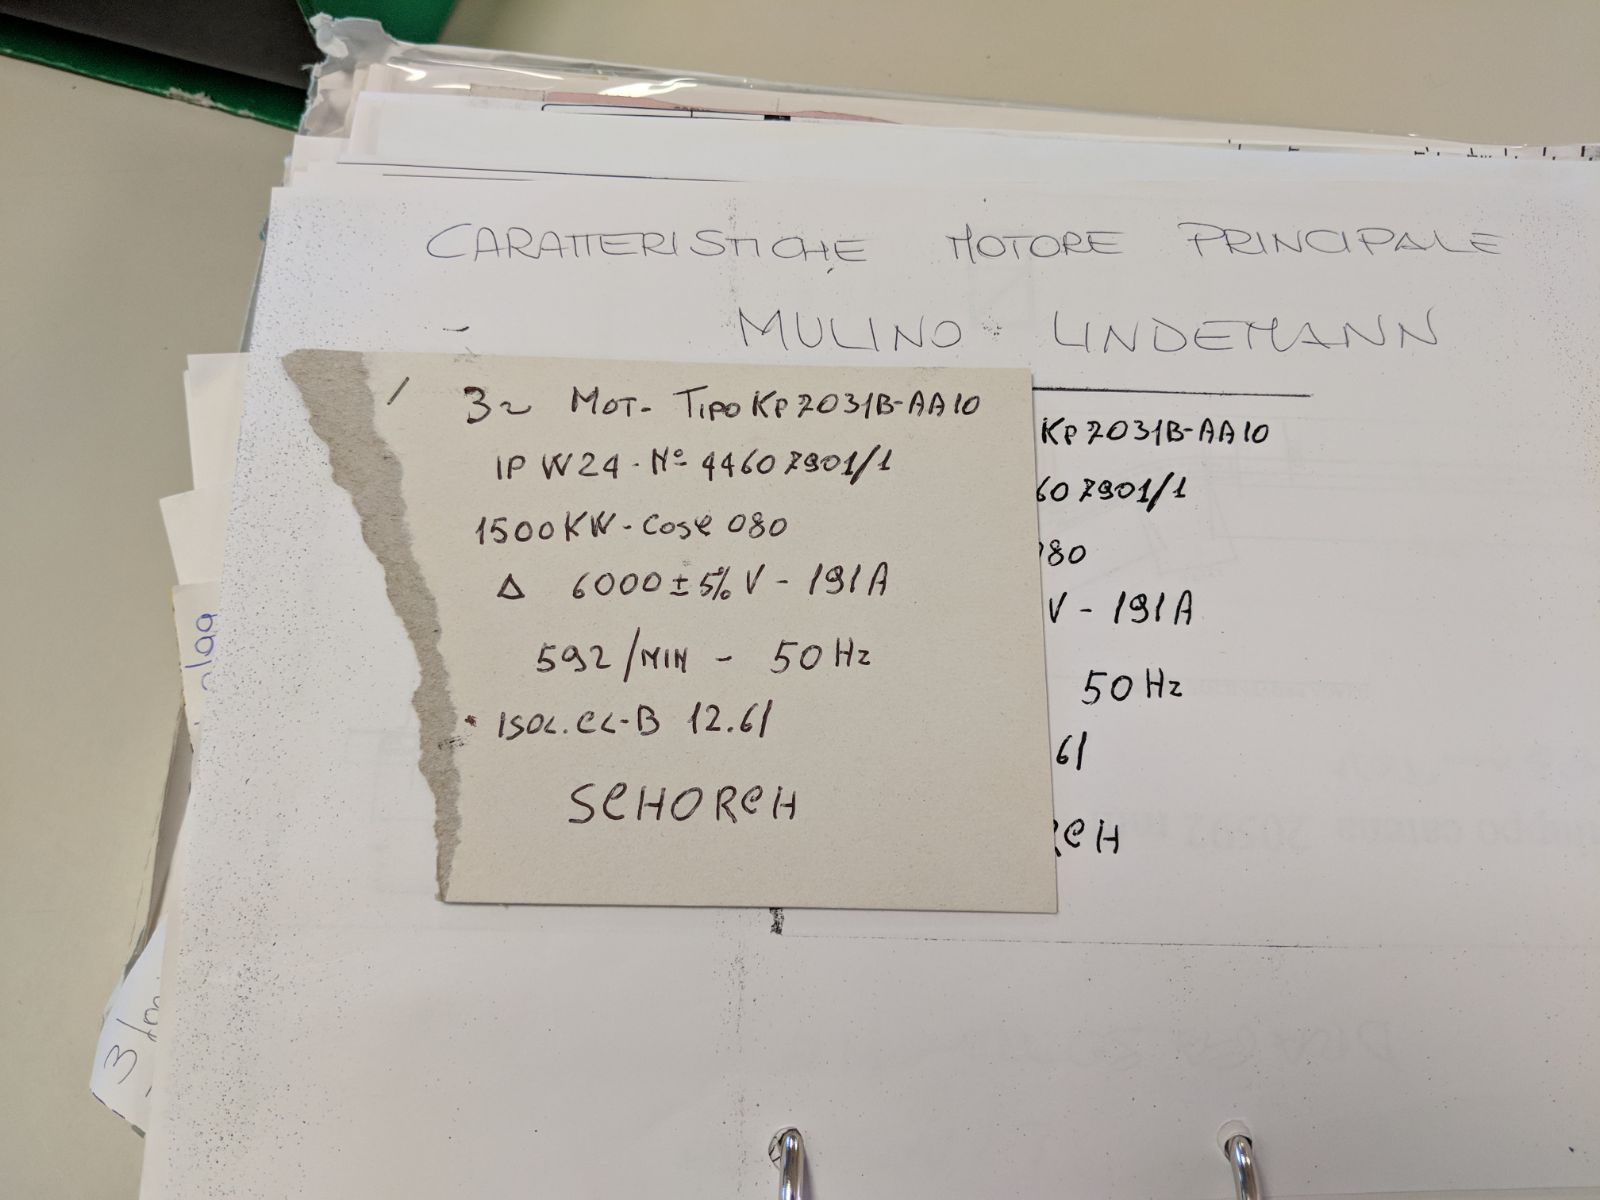 CARATTERISTICHE MOTORE PRINCIPALE
MULINO LINDEMANN
3~ MOT- TIPO KP7031B-AA10
IP W24 - N° 44607901/1
1500KW - COSφ 080
Δ 6000 ± 5% V - 191A
592/MIN - 50 Hz
ISOL. CL-B 12.61
SCHORCH
KP7031B-AA10
607901/1
80
V - 191A
50 Hz
61
RCH
3/m